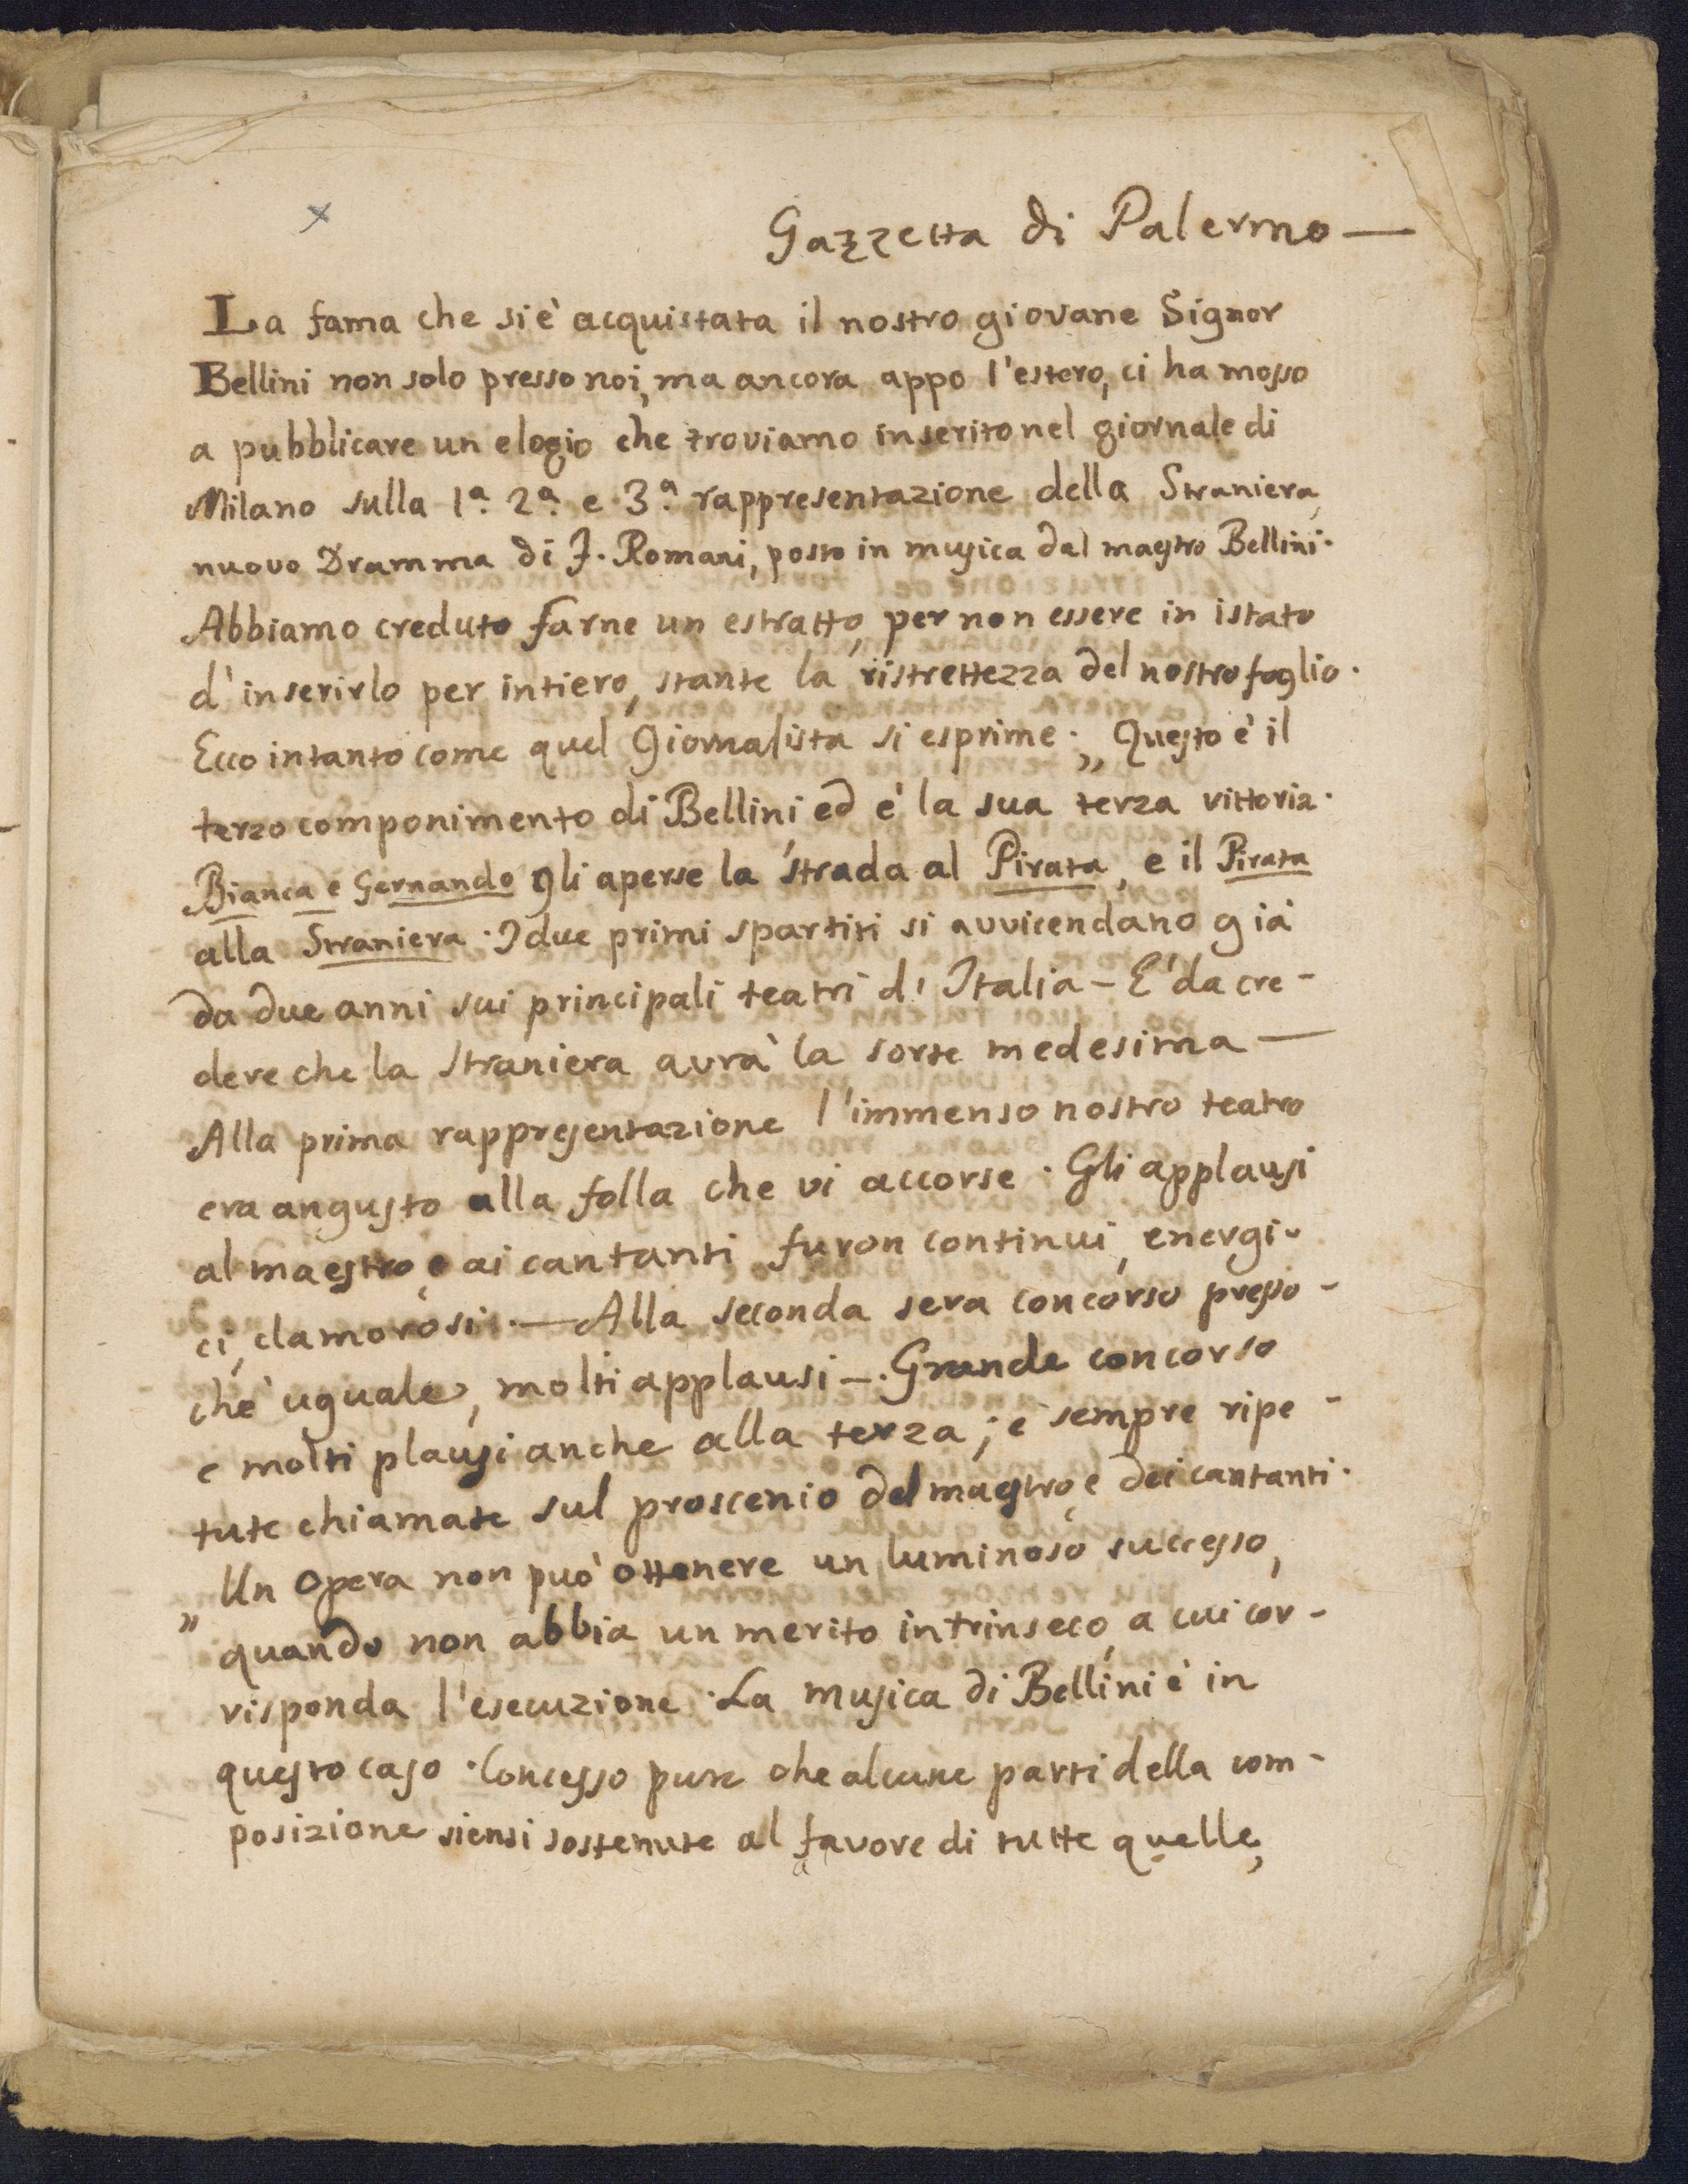 x
Gazzetta di Palermo —
La fama che si è acquistata il nostro giovane Signor
Bellini non solo presso noi, ma ancora appo l'estero, ci ha mosso
a pubblicare un elogio che troviamo inserito nel giornale di
Milano sulla 1ª 2ª e 3ª rappresentazione della Straniera,
nuovo Dramma di F. Romani, posto in musica dal maestro Bellini.
Abbiamo creduto farne un estratto, per non essere in istato
d'inserirlo per intiero, stante la ristrettezza del nostro foglio.
Ecco intanto come quel Giornalista si esprime. „ Questo è il
terzo componimento di Bellini, ed è la sua terza vittoria.
Bianca e Gernando gli aperse la strada al Pirata, e il Pirata
alla Straniera. I due primi spartiti si avvicendano già
da due anni sui principali teatri d'Italia - E' da cre-
dere che la straniera avrà la sorte medesima —
Alla prima rappresentazione l'immenso nostro teatro
era angusto alla folla che vi accorse. Gli applausi
al maestro, e ai cantanti furon continui, energi-
ci, clamorosi. — Alla seconda sera concorso presso-
chè uguale, molti applausi -. Grande concorso
e molti plausi anche alla terza; e sempre ripe-
tute chiamate sul proscenio del maestro, e dei cantanti.
Un Opera non può ottenere un luminoso successo,
„ quando non abbia un merito intrinseco, a cui cor-
risponda l'esecuzione. La musica di Bellini è in
questo caso. Concesso pure che alcune parti della com-
posizione siensi sostenute al favore di tutte quelle,